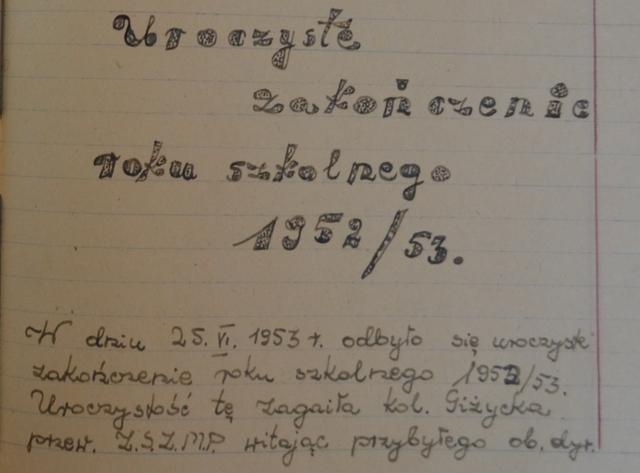 Uroczyste
zakończenie
roku szkolnego
1952/53.
W dniu 25. VI. 1953 r. odbyło się uroczyste
zakończenie roku szkolnego 1952/53.
Uroczystość tę zagaiła kol. Giżycka
przew. Z.S.Z.M.P. witając przybyłego ob. dyr.